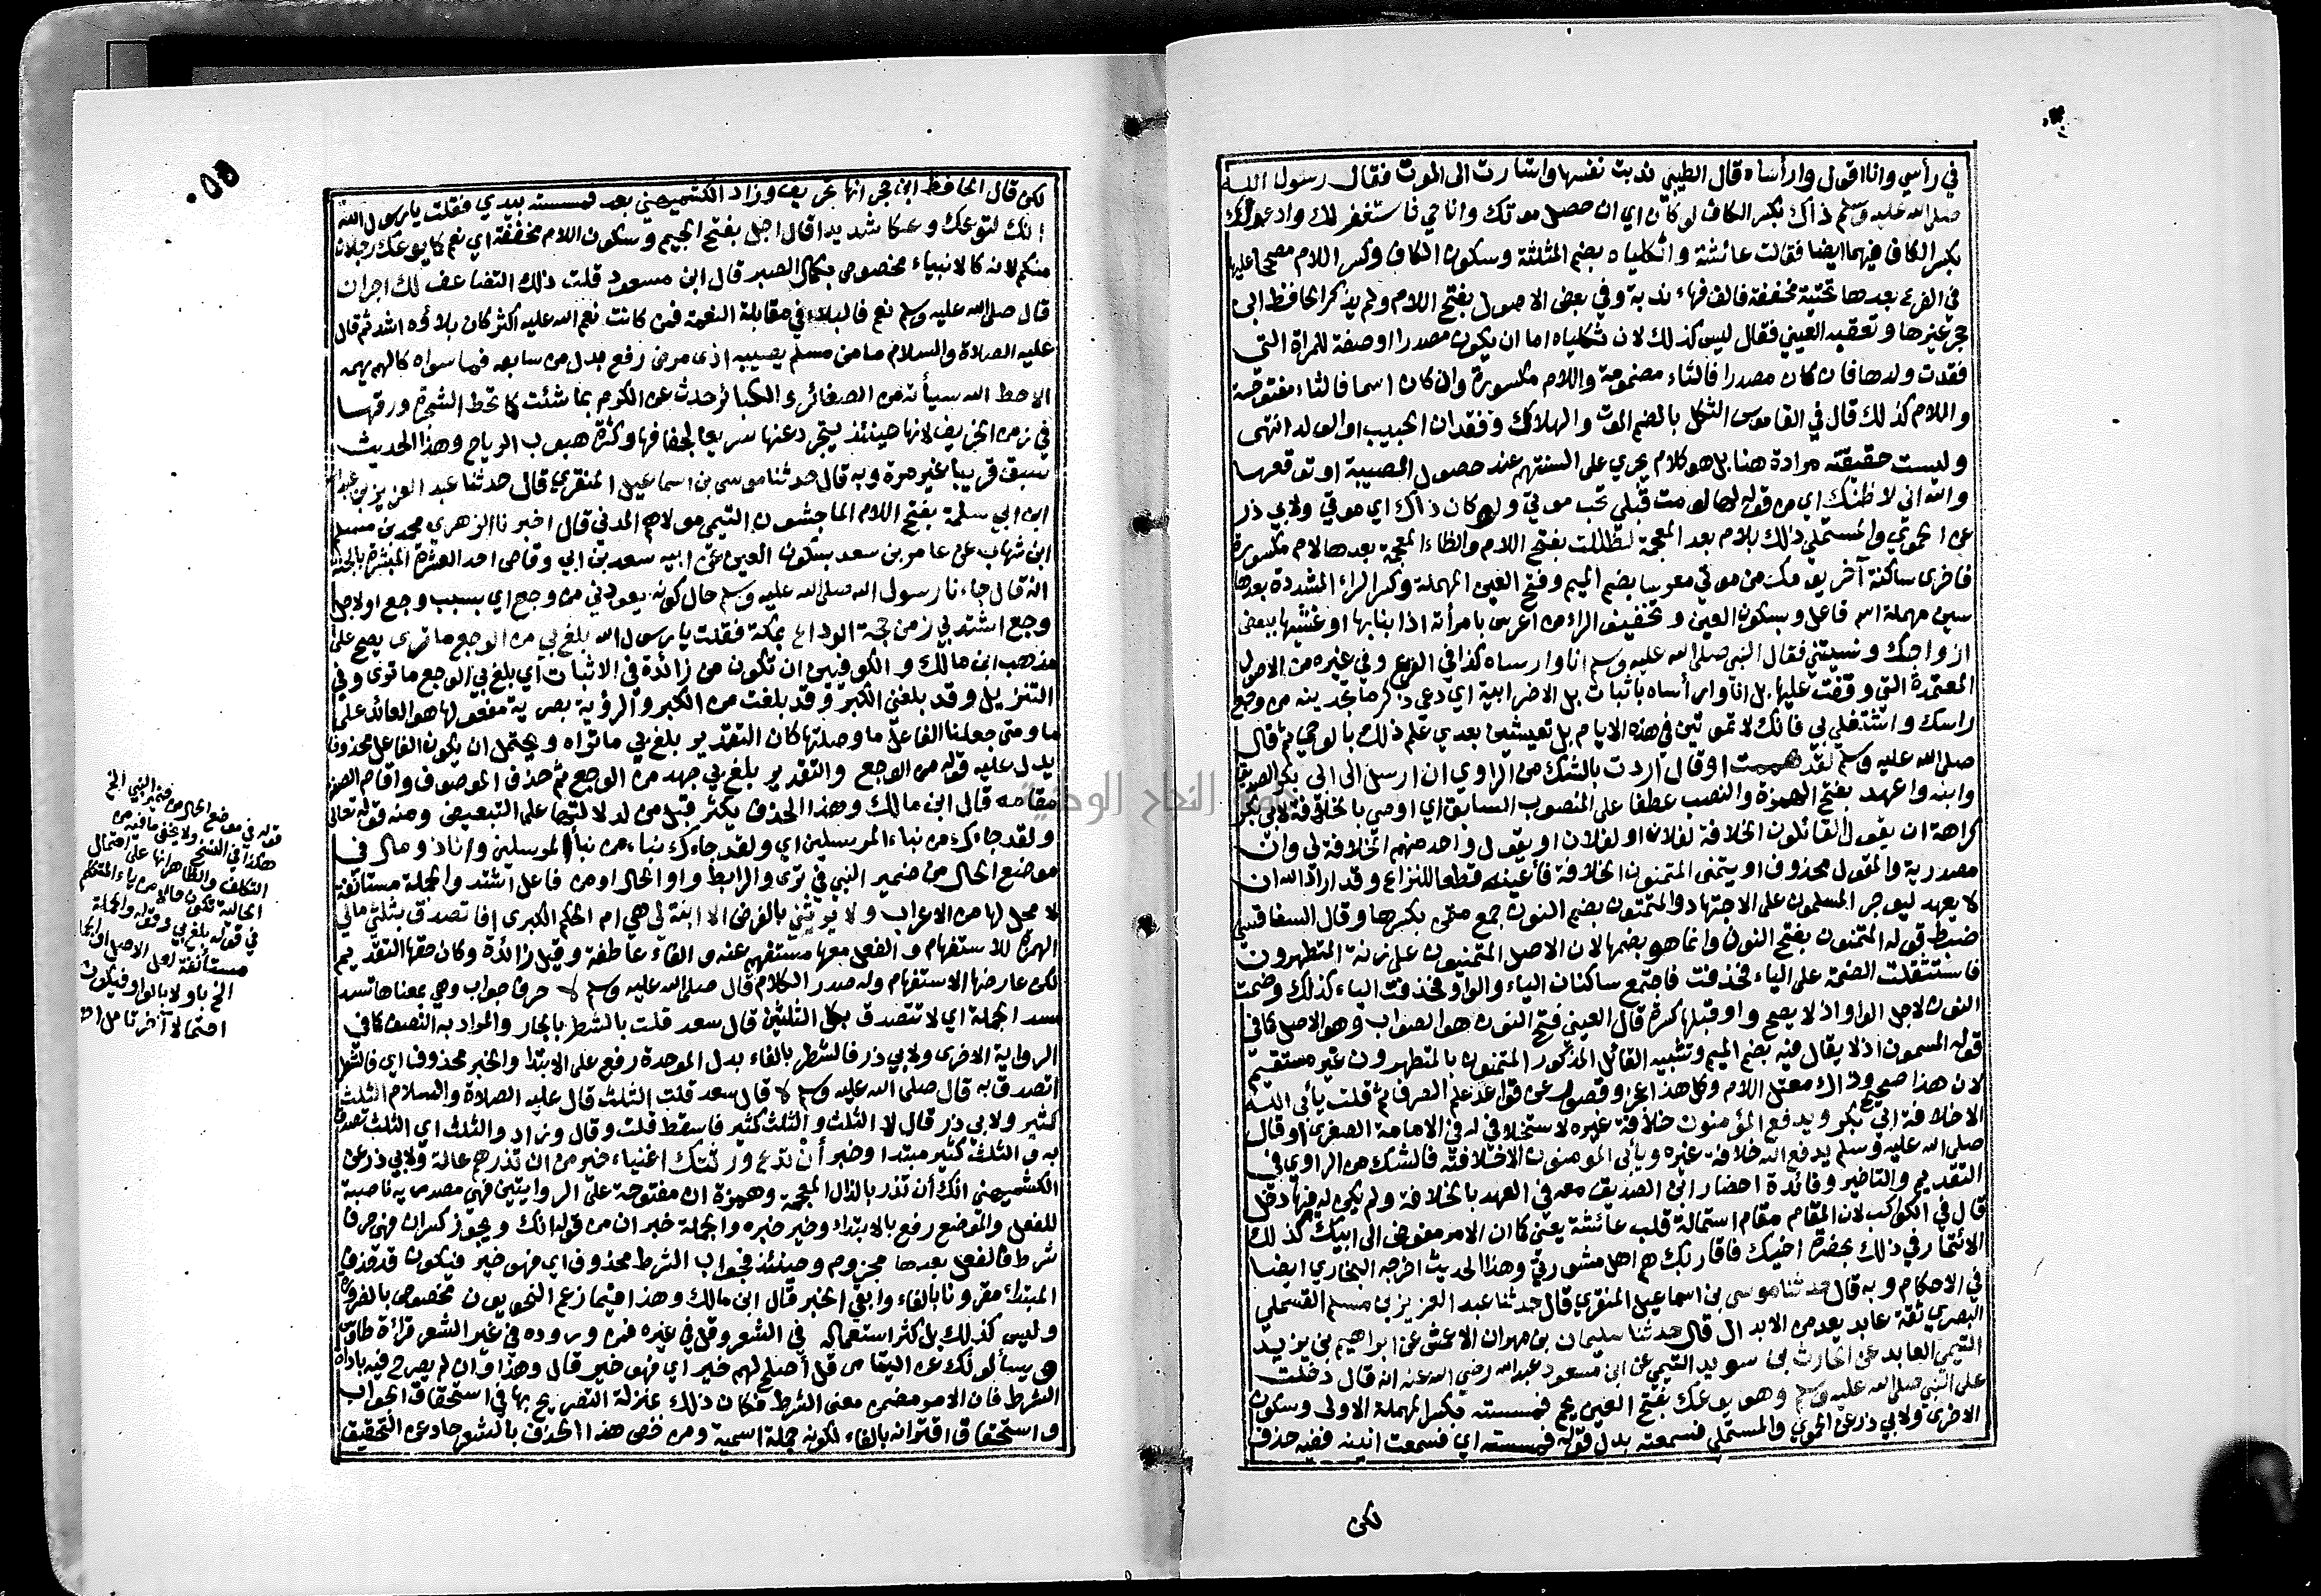 في رأسي وانا اقول وارأساه قال الطيبي ندبت نفسها واشارت الى الموت فقال رسول الله
صلى الله عليه وسلم ذاك بكسر الكاف لو كان اي ان حصل موتك وانا حي فاستغفر لك وادعو لك
بكسر الكاف فيهما ايضا فقالت عائشة واثكلياه بضم المثلثة وسكون الكاف وكسر اللام مصححا عليها
في الفرع بعدها تحتية مخففة فالف فهاء ندبة وفي بعض الاصول بفتح اللام ولم يذكر الحافظ ابن
حجر غيرها وتعقبه العيني فقال ليس كذلك لان ثكلياه اما ان يكون مصدرا او صفة للمرأة التي
فقدت ولدها فان كان مصدرا فالثاء مضمومة واللام مكسورة وان كان اسما فالثاء مفتوحة
واللام كذلك قال في القاموس الثكل بالضم الموت والهلاك وفقدان الحبيب او الولد انتهى
وليست حقيقته مرادة هنا بل هو كلام يجري على السنتهم عند حصول المصيبة او توقعها
والله اني لاظنك اي من قوله لها لو مت قبلي تحب موتي ولو كان ذاك اي موتي ولابي ذر
عن الحموي والمستملي ذلك بلام بعد المعجمة لظللت بفتح اللام والظاء المعجمة بعدها لام مكسورة
فاخرى ساكنة آخر يومك من موتي معرسا بضم الميم وفتح العين المهملة وكسر الراء المشددة بعدها
سين مهملة اسم فاعل وبسكون العين وتخفيف الراء من اعرس بامرأته اذا بنا بها او غشيها ببعض
ازواجك ونسيتني فقال النبي صلى الله عليه وسلم انا وارساه كذا في الفرع وفي غيره من الاصول
المعتمدة التي وقفت عليها بل انا وارأساه باثبات بل الاضرابية اي دعي ذكر ما تجدينه من وجع
راسك واشتغلي بي فانك لا تموتين في هذه الايام بل تعيشين بعدي علم ذلك بالوحي ثم قال
صلى الله عليه وسلم لقد هممت او قال اردت بالشك من الراوي ان ارسل الى ابي بكر الصديق
وابنه واعهد بفتح الهمزة والنصب عطفا على المنصوب السابق اي اوصي بالخلافة لابي بكر
كراهة ان يقول القائلون الخلافة لفلان او لفلان او يقول واحد منهم الخلافة لي وان
مصدرية والمقول محذوف او يتمنى المتمنون الخلافة فأعينه قطعا للنزاع وقد اراد الله ان
لا يعهد ليوجر المسلمون على الاجتهاد والمتمنون بضم النون جمع متمني بكسرها وقال السفاقسي
ضبط قوله المتمنون بفتح النون وانما هو بضمها لان الاصل المتمنيون على زنة المتطهرون
فاستثقلت الضمة على الياء فحذفت فاجتمع ساكنان الياء والواو فحذفت الياء كذلك وضمت
النون لاجل الواو اذ لا يصح واو قبلها كسرة قال العيني فتح النون هو الصواب وهو الاصل كما في
قوله المسمون اذ لا يقال فيه بضم الميم وتشبيه القائل المذكور المتمنون بالمتطهرون غير مستقيم
لان هذا صحيح وذاك معتل اللام وكل هذا عجز وقصور عن قواعد علم الصرف ثم قلت يأبى الله
الا خلافة ابي بكر ويدفع المؤمنون خلافة غيره لاستخلافي له في الامامة الصغرى او قال
صلى الله عليه وسلم يدفع الله خلافة غيره ويأبى المومنون الا خلافته فالشك من الراوي في
التقديم والتاخير وفائدة احضار ابن الصديق معه في العهد بالخلافة ولم يكن له فيها دخل
قال في الكواكب لان المقام مقام استمالة قلب عائشة يعني كما ان الامر مفوض الى ابيك كذلك
الائتمار في ذلك بحضرة اخيك فاقاربك هم اهل مشورتي وهذا الحديث اخرجه البخاري ايضا
في الاحكام وبه قال حدثنا موسى بن اسماعيل المنقري قال حدثنا عبد العزيز بن مسلم القسملي
البصري ثقة عابد يعد من الابدال قال حدثنا سليمان بن مهران الاعمش عن ابراهيم بن يزيد
التيمي العابد عن الحارث بن سويد التيمي عن ابن مسعود عبد الله رضي الله عنه انه قال دخلت
على النبي صلى الله عليه وسلم وهو يوعك بفتح العين يحم فمسسته بكسر المهملة الاولى وسكون
الاخرى ولابي ذر عن الحموي والمستملي فسمعته بدل قوله فمسسته اي فسمعت انينه ففيه حذف
لكن
لكن قال الحافظ ابن حجر انها تحريف وزاد الكشميهني بعد فمسسته بيدي فقلت يا رسول الله
انك لتوعك وعكا شديدا قال اجل بفتح الجيم وسكون اللام مخففة اي نعم كما يوعك رجلان
منكم لانه كالانبياء مخصوص بكمال الصبر قال ابن مسعود قلت ذلك التضاعف لك اجران
قال صلى الله عليه وسلم نعم فالبلاء في مقابلة النعمة فمن كانت نعم الله عليه اكثر كان بلاؤه اشد ثم قال
عليه الصلاة والسلام ما من مسلم يصيبه اذى مرض رفع بدل من سابقه فما سواه كالهم يهمه
الا حط الله سيأته من الصغائر والكبائر حدث عن الكرم بما شئت كما تحط الشجرة ورقها
في زمن الخريف لانها حينئذ يتجرد عنها سريعا لجفافها وكثرة هبوب الرياح وهذا الحديث
سبق قريبا غير مرة وبه قال حدثنا موسى بن اسماعيل المنقري قال حدثنا عبد العزيز بن عبد الله
ابن ابي سلمة بفتح اللام الماجشون التيمي مولاهم المدني قال اخبرنا الزهري محمد بن مسلم
ابن شهاب عن عامر بن سعد بسكون العين عن ابيه سعد بن ابي وقاص احد العشرة المبشرة بالجنة
انه قال جاءنا رسول الله صلى الله عليه وسلم حال كونه يعودني من وجع اي بسبب وجع او لاجل
وجع اشتد بي زمن حجة الوداع بمكة فقلت يا رسول الله بلغ بي من الوجع ما ترى يصح على
مذهب ابن مالك والكوفيين ان تكون من زائدة في الاثبات اي بلغ بي الوجع ما ترى وفي
التنزيل وقد بلغني الكبر وقد بلغت من الكبر والرؤية بصرية مفعولها هو العائد على
ما ومتى جعلنا الفاعل ما وصلتها كان التقدير بلغ بي ما تراه ويحتمل ان يكون الفاعل محذوفا
يدل عليه قوله من الوجع والتقدير بلغ بي جهد من الوجع ثم حذف الموصوف واقام الصفة
مقامه قال ابن مالك وهذا الحذف يكثر قبل من لدلالتها على التبعيض ومنه قوله تعالى
ولقد جاءك من نباء المرسلين اي ولقد جاءك نباء من نبأ المرسلين واناذ ومال في
موضع الحال من ضمير النبي في ترى والرابط واو الحال او من فاعل اشتد والجملة مستانفة
لا محل لها من الاعراب ولا يرثني بالفرض الا ابنة لي هي ام الحكم الكبرى افاتصدق بثلثي مالي
الهمزة للاستفهام والفعل معها مستفهم عنه والفاء عاطفة وقيل زائدة وكان حقها التقديم
لكن عارضها الاستفهام وله صدر الكلام قال صلى الله عليه وسلم لا حرف جواب وهي بمعناها تسد
مسد الجملة اي لا تتصدق بكل الثلثين قال سعد قلت بالشطر بالجار والمراد به النصف كما في
الرواية الاخرى ولابي ذر فالشطر بالفاء بدل الموحدة رفع على الابتدا والخبر محذوف اي فالشطر
اتصدق به قال صلى الله عليه وسلم لا قال سعد قلت الثلث قال عليه الصلاة والسلام الثلث
كثير ولابي ذر قال لا الثلث والثلث كثير فاسقط قلت وقال وزاد والثلث اي الثلث تصدق
به والثلث كثير مبتدا وخبر أن تدع ورثتك اغنياء خير من ان تذرهم عالة ولابي ذر عن
الكشميهني انك أن تذر بالذال المعجمة وهمزة ان مفتوحة على الروايتين فهي مصدرية ناصبة
للفعل والموضع رفع بالابتداء وخير خبره والجملة خبر ان من قوله انك ويجوز كسر ان فهي حرف
شرط فالفعل بعدها مجزوم وحينئذ فجواب الشرط محذوف اي فهو خير فيكون قد حذف
المبتداء مقرونا بالفاء وابقي الخبر قال ابن مالك وهذا فيما زعم النحويون مخصوص بالضرورة
وليس كذلك بل كثر استعماله في الشعر وقل في غيره فمن وروده في غير الشعر قراءة طاوس
ويسألونك عن اليتامى قل أصلح لهم خير اي فهو خير قال وهذا وان لم يصرح فيه باداة
الشرط فان الامر مضمن معنى الشرط فكان ذلك بمنزلة التصريح بها في استحقاق الجواب
واستحقاق اقترانه بالفاء لكونه جملة اسمية ومن خص هذا الحذف بالشعر حاد عن التحقيق
قوله في موضع الحال من ضمير النبي الخ
هكذا في النسخ ولا يخفى ما فيه من
التكلف والظاهر انها على احتمال
الحالية تكون حالا من ياء المتكلم
في قوله بلغ بي وقوله والجملة
مستأنفة لعل الاصل او الجملة
الخ باو لا بالواو فيكون
احتمالا آخر تامل اهـ